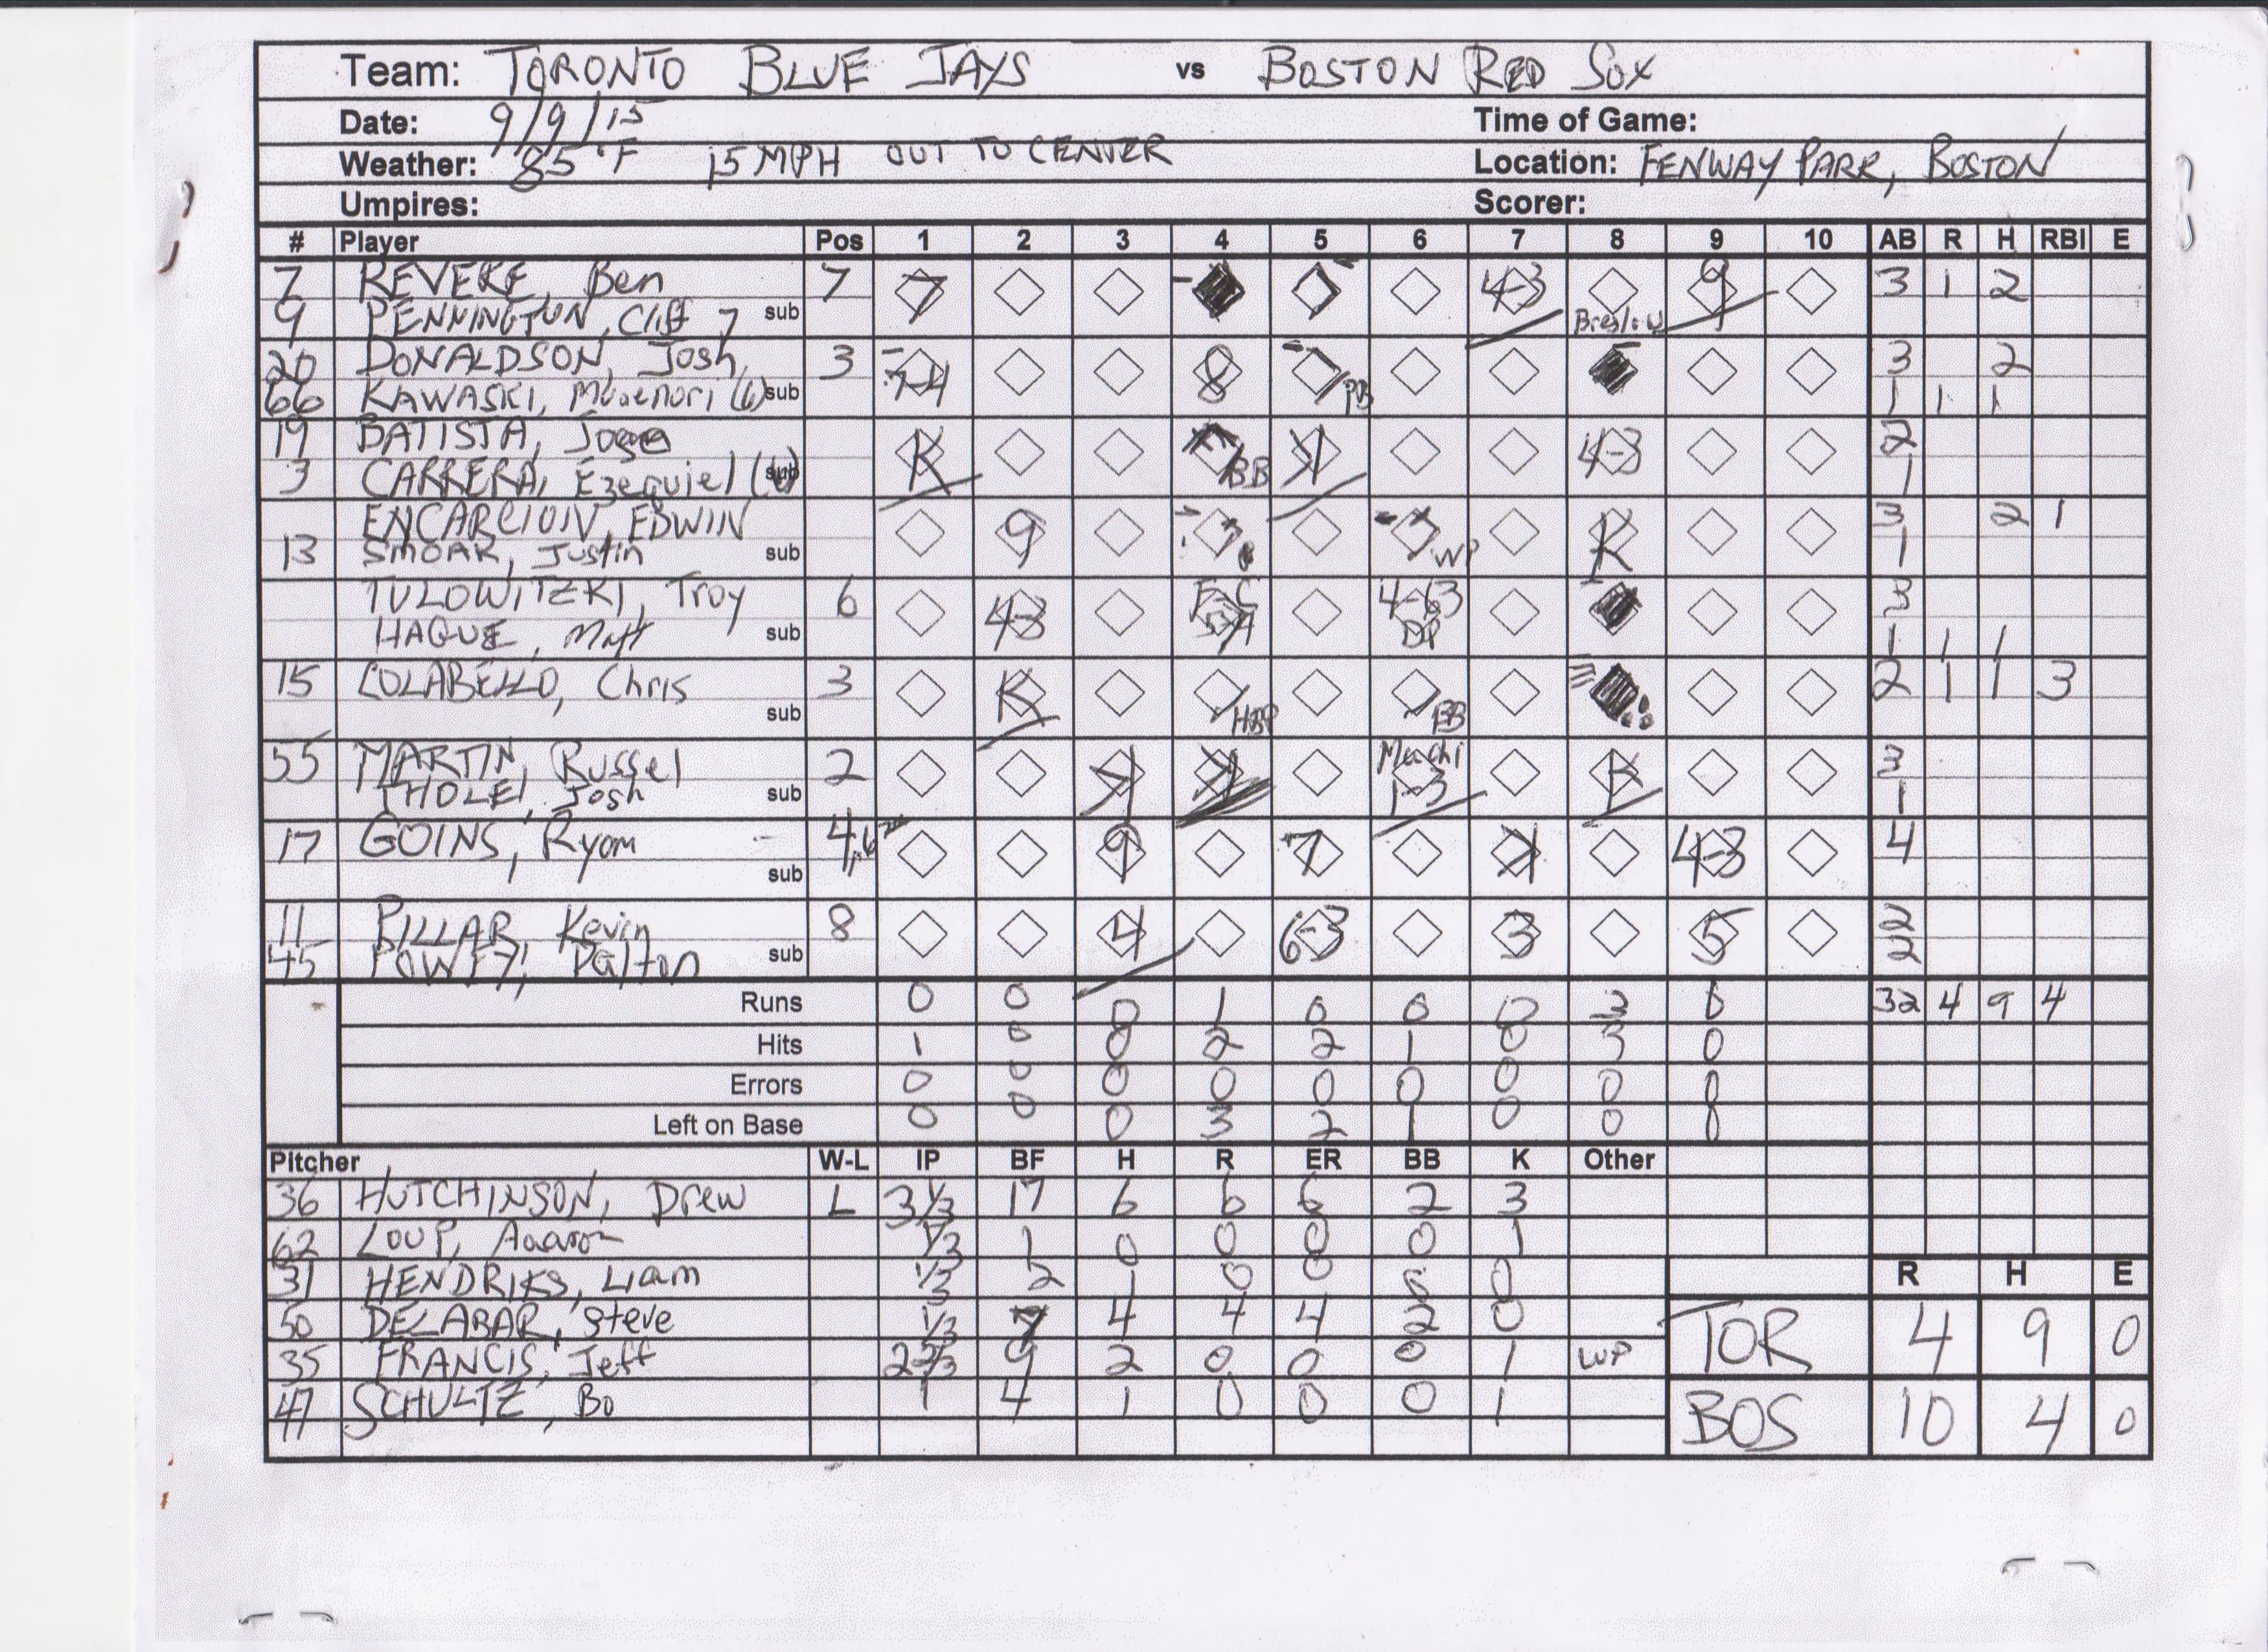 Team: TORONTO BLUE JAYS vs BOSTON RED SOX
Date: 9/9/15 Time of Game:
Weather: 85 °F 15 MPH OUT TO CENTER Location: FENWAY PARK, BOSTON
Umpires: Scorer:
# Player Pos 1 2 3 4 5 6 7 8 9 10 AB R H RBI E
7 REVERE, Ben 7 7 4-3 9 3 1 2
9 PENNINGTON, Cliff 7 sub Breslow
20 DONALDSON, Josh 3 7-4 8 PB 3 2
66 KAWASKI, Munenori (6) sub 1 1 1
19 BATISTA, K BB K 4-3 2
3 CARRERA, Ezequiel sub 1
ENCARCIOIV, EDWIN 9 WP K 3 2 1
13 SMOAK, Justin sub 1
TULOWITZKI, Troy 6 4-3 F-C 4-63 3
HAGUE, Matt sub DP 1 1 1
15 COLABELLO, Chris 3 K HBP BB 2 1 1 3
sub
55 MARTIN, Russel 2 K K 1-3 K 3
THOLE, Josh sub 1
17 GOINS, Ryan 4,6 9 7 K 4-3 4
sub
11 PILLAR, Kevin 8 4 6-3 3 5 2
45 POWEY, Dalton sub 2
Runs 0 0 0 1 0 0 0 3 0 32 4 9 4
Hits 1 0 0 2 2 1 0 3 0
Errors 0 0 0 0 0 0 0 0 0
Left on Base 0 0 0 3 2 1 0 0 0
Pitcher W-L IP BF H R ER BB K Other
36 HUTCHINSON, Drew L 3 1/3 17 6 6 6 2 3
62 LOUP, Aaaron 1/3 1 0 0 0 0 1
31 HENDRIKS, Liam 1/3 2 1 0 0 0 0
R H E
50 DELABAR, Steve 1/3 7 4 4 4 2 0
TOR 4 9 0
35 FRANCIS, Jeff 2 2/3 9 2 0 0 0 1 WP
47 SCHULTZ, Bo 1 4 1 0 0 0 1
BOS 10 4 0